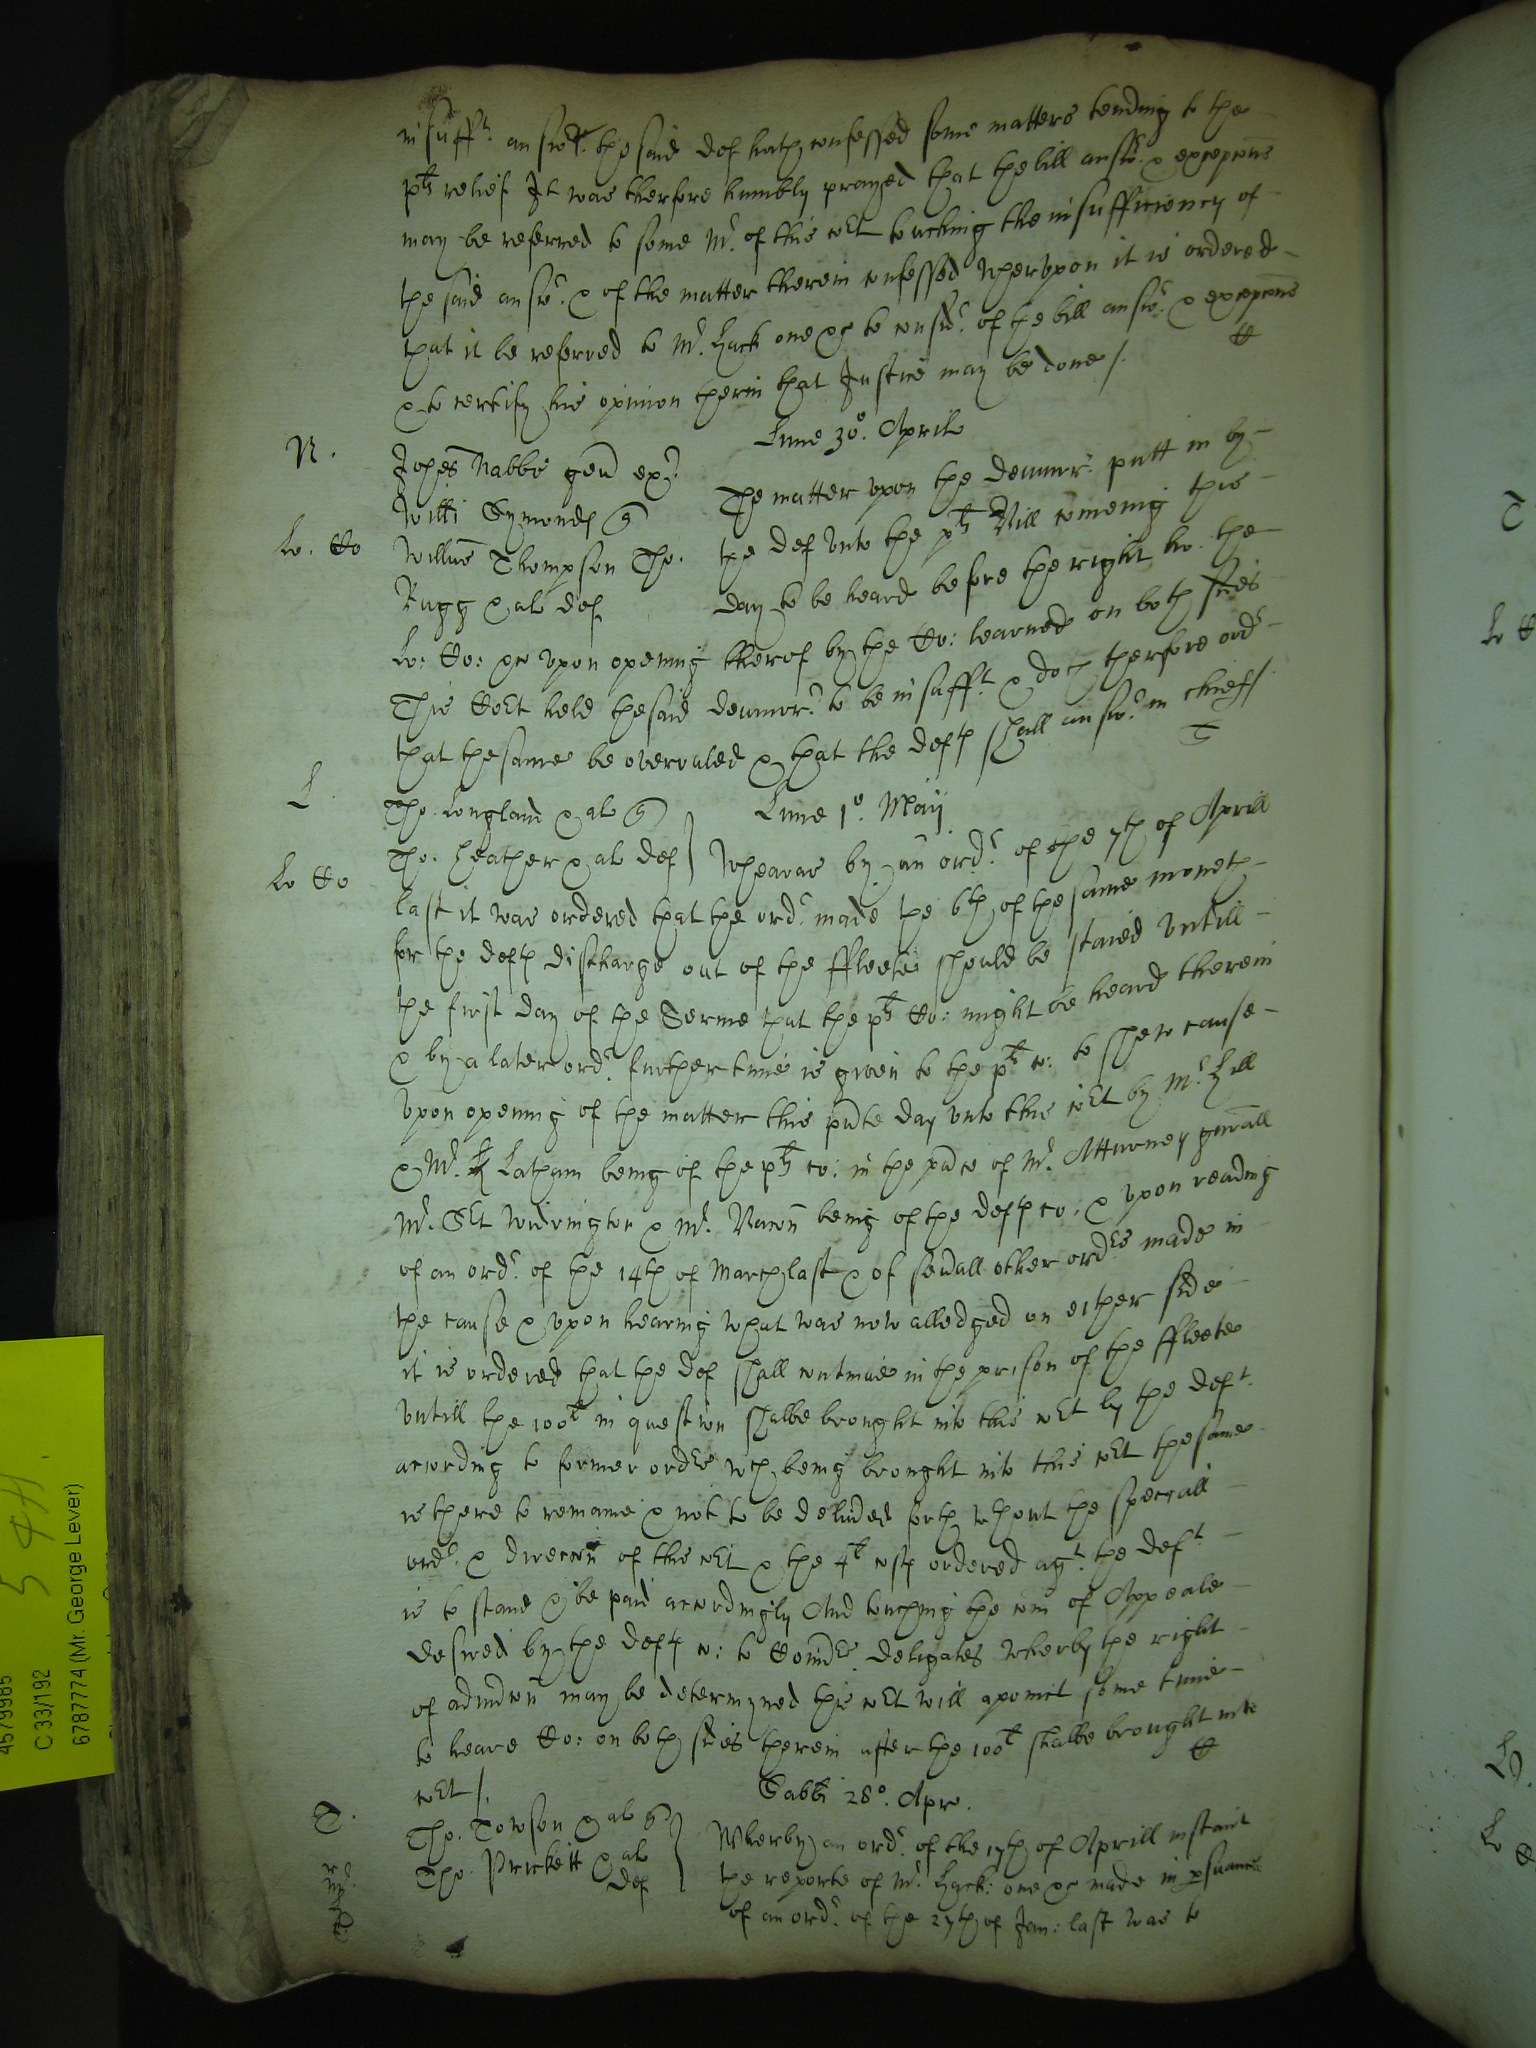 insufft. answer. the said def hath confessed some matters tending to the
plts relief It was therfore humbly prayed that the bill answ. & excepcons
may be referred to some Mr. of this cort touching the insufficiency of
the said answ. & of the matter therein confessed wherupon it is ordered
that it be referred to Mr. Hack one &c to consid. of the bill answ. & excepcons
& to certify his opinion therin that Justice may be done /.
Lune 30o. Aprilis
N.
Johes Nabbs gen exr.
Willi Symonds q
Lo. Co
Willus Thompson Tho.
Rugg & al def
The matter upon the demurr. putt in by
the def unto the plts Bill cominge this
day to be heard before the right ho. the
Lo: Co: &c upon opening therof by the Co: learned on both sides
This Cort held the said demurr. to be insufft. & doth therfore ord
that the same be overruled & that the defts shall answ. in chief /.
L.
Tho. Longland & al q
Lune 1o. Maij
Tho. Heather & al def
Lo Co
Wheras by an ord. of the 7th of Aprill
last it was ordered that the ord. made the 6th of the same moneth
for the defts discharge out of the ffleete should be staied untill
the first day of the Terme that the plts Co: might be heard therein
& by a later ord. further time is given to the plts co: to shew cause
upon opening of the matter this pnte day unto this cort by Mr. Hill
& Mr. Latham being of the plts co: in the pnce of Mr. Atturney genall
Mr. Sert Widrington & Mr. Bacon being of the defts co: & upon reading
of an ord. of the 14th of March last & of sevall other orders made in
the cause & upon hearing what was now alledged on either side
it is ordered that the def shall continue in the prison of the ffleete
untill the 100l in question shalbe brought into this cort by the deft.
according to former orders wch being brought into this cort the same
is there to remaine & not to be delivered forth without the speciall
ord. & direccon of this cort & the 4l costs ordered agt. the deft.
is to stand & be paid accordingly And touching the com of Appeale
desired by the defts co: to Comrs. delegates wherby the right
of admcon may be determyned this cort will apoint some time
to heare Co: on both sides therein after the 100l shalbe brought into
cort /.
Sabbi 28o. Apr.
T.
Tho. Towson & al q
Tho. Prickett & al
def
Wherby an ord. of the 17th of Aprill instant
the reporte of Mr. Hack: one &c made in psuance
of an ord. of the 27th of Jan: last was to
4579985
C 33/192
6787774 (Mr. George Lever)